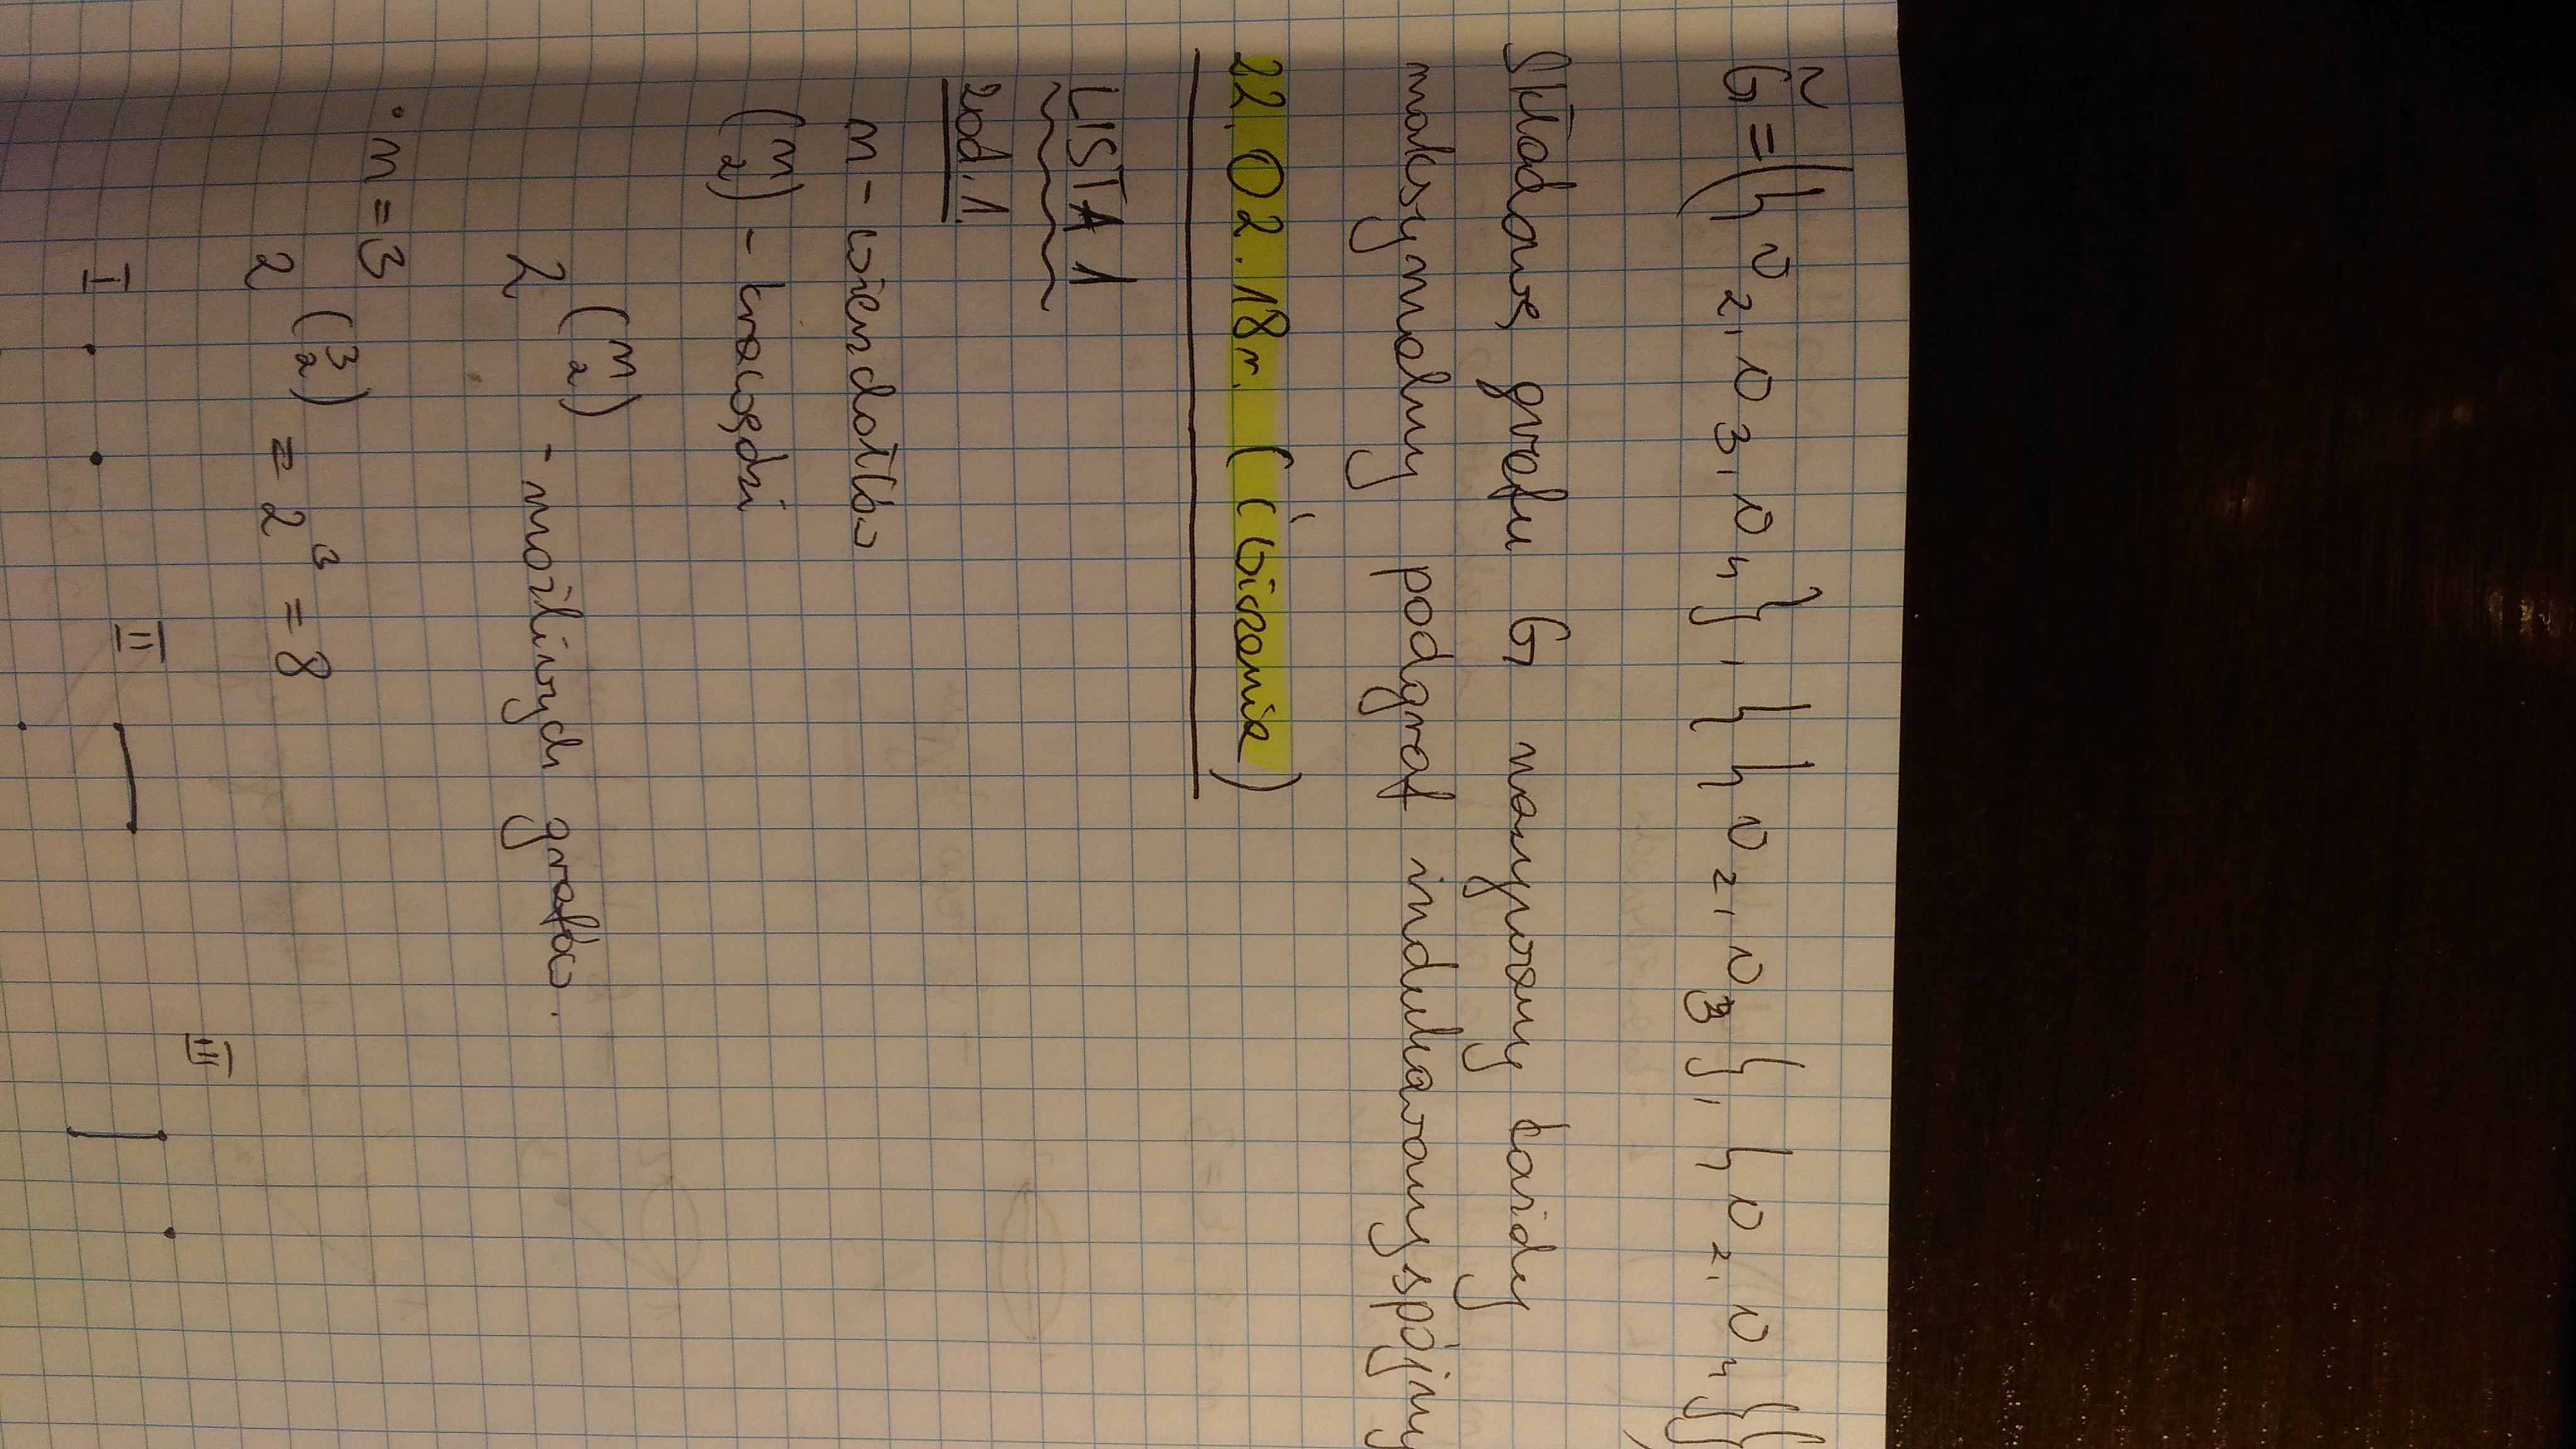 G̃ = ({v₂, v₃, v₄}, {{v₂, v₃}, {v₂, v₄}})
Składową grafu G nazywamy każdy
maksymalny podgraf indukowany spójny
22.02.18r. (Ćwiczenia)
LISTA 1
zad. 1.
n - wierzchołków
(n 2) - krawędzi
2^(n 2) - możliwych grafów.
• n = 3
2^(3 2) = 2³ = 8
I II III